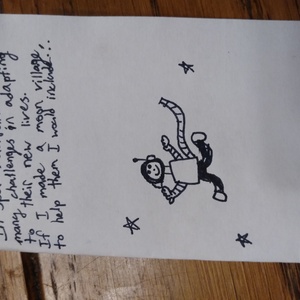 challenges in adapting
many their new lives.
to
If I made a moon village,
to help them I would include...